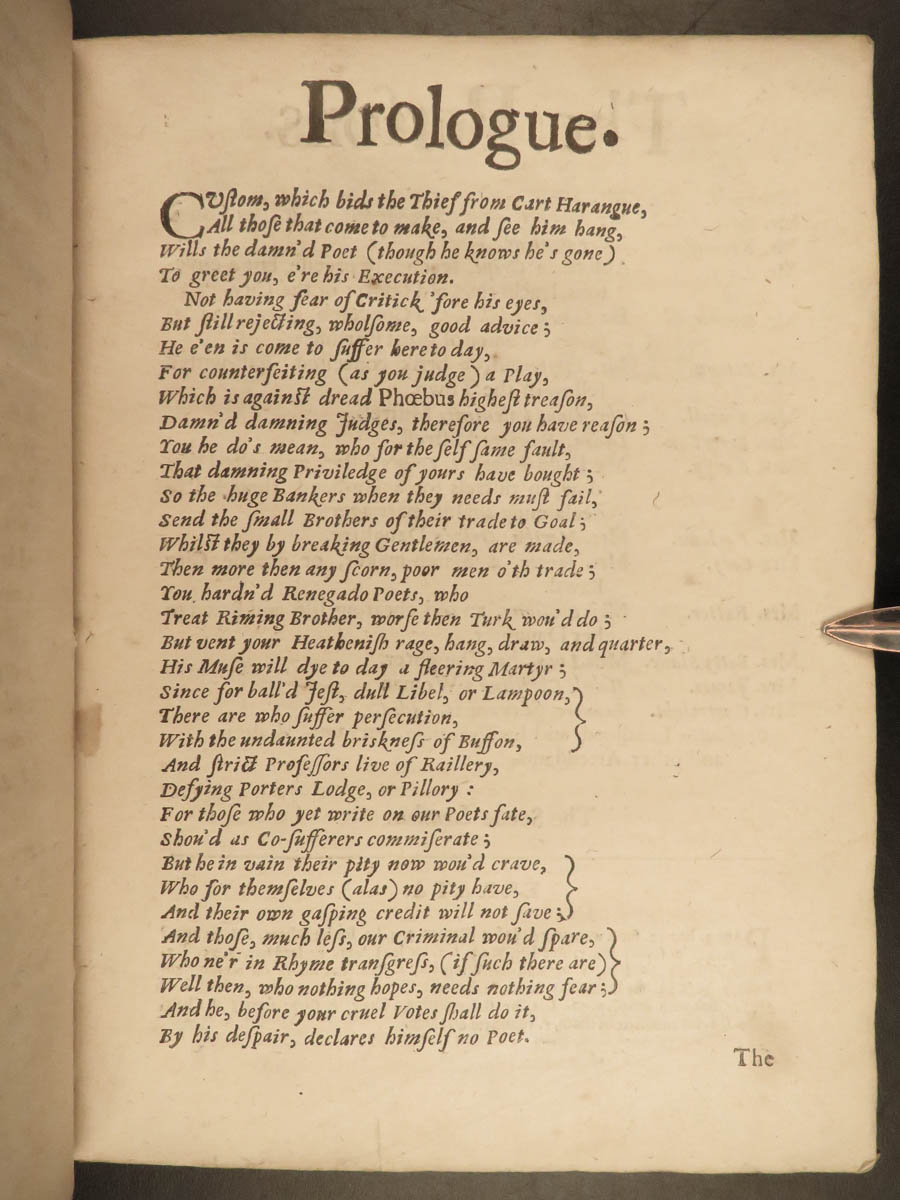 Prologue.
CUſtom, which bids the Thief from Cart Harangue,
All thoſe that come to make, and ſee him hang,
Wills the damn'd Poet (though he knows he's gone)
To greet you, e're his Execution.
Not having fear of Critick 'fore his eyes,
But ſtill rejecting, wholſome, good advice;
He e'en is come to ſuffer here to day,
For counterfeiting (as you judge) a Play,
Which is againſt dread Phœbus higheſt treaſon,
Damn'd damning Judges, therefore you have reaſon;
You he do's mean, who for the ſelf ſame fault,
That damning Priviledge of yours have bought;
So the huge Bankers when they needs muſt fail,
Send the ſmall Brothers of their trade to Goal;
Whilſt they by breaking Gentlemen, are made,
Then more then any ſcorn, poor men o'th trade;
You hardn'd Renegado Poets, who
Treat Riming Brother, worſe then Turk wou'd do;
But vent your Heatheniſh rage, hang, draw, and quarter,
His Muſe will dye to day a fleering Martyr;
Since for ball'd Jeſt, dull Libel, or Lampoon,
There are who ſuffer perſecution,
With the undaunted briskneſs of Buffon,
And ſtrict Profeſſors live of Raillery,
Defying Porters Lodge, or Pillory:
For thoſe who yet write on our Poets fate,
Shou'd as Co-ſufferers commiſerate;
But he in vain their pity now wou'd crave,
Who for themſelves (alas) no pity have,
And their own gaſping credit will not ſave;
And thoſe, much leſs, our Criminal wou'd ſpare,
Who ne'r in Rhyme tranſgreſs, (if ſuch there are)
Well then, who nothing hopes, needs nothing fear;
And he, before your cruel Votes ſhall do it,
By his deſpair, declares himſelf no Poet.
The